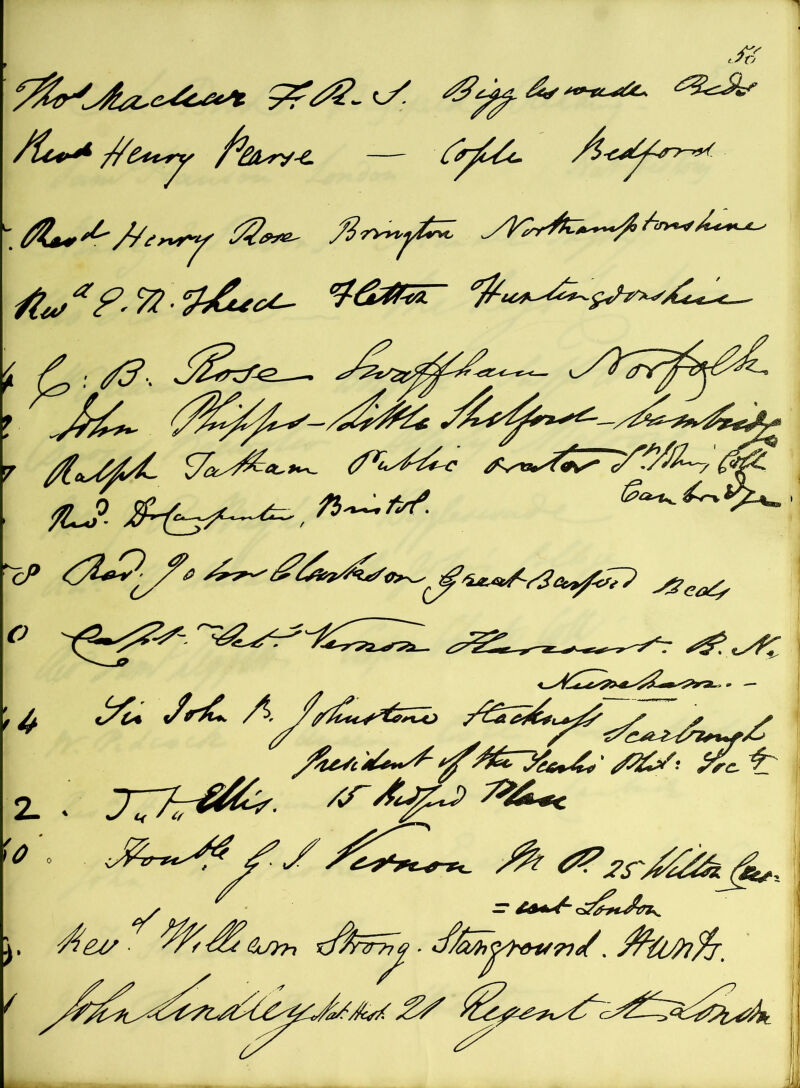 56
Thos Maclear F. R. S. Biggleswade Beds
Revd Henry Pearse — Cople Bedford
Revd Henry Rose Brington Northamptonshire
Revd E. R. Theed Fletton Huntingdonshire
4 C: B: Rose Swaffham Norfolk
2 John Phipps - Little Shelford - Cambridge
7 Ralph Tatham Public orator St John's Coll
Cambridge
Revd. Dr Carpenter, Bristol.
58 Revd. John Clarkson Great Barford Beds
0 Capt. Vernon Harcourt. R. N.
Nuneham. -
44 Sir John B. Johnstone Hackness Scarbrough
President of the Scarbro' Phil: Socty
2 . J" T" Ellis. 15 Bedford Place
60 . Honble G. J. Vernon M P. 25 Wilton Cres=
=cent London
9. Revd. William Strong. Stanground. Hunts.
1 John Lindley Nat. Hist. 21 Regent St London